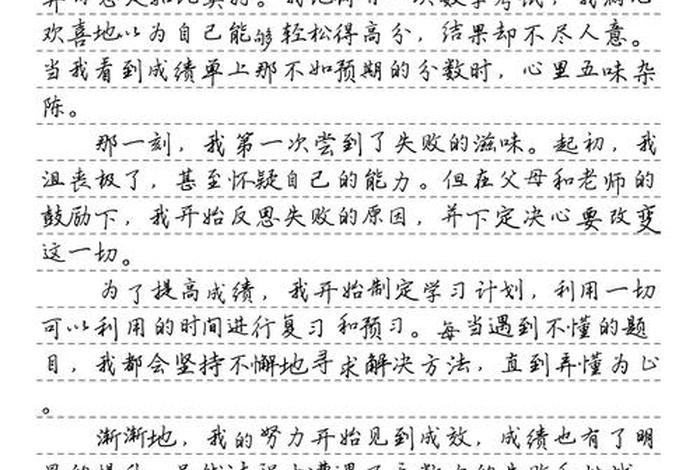 欢喜地以为自己能够轻松得高分，结果却不尽人意。
当我看到成绩单上那不如预期的分数时，心里五味杂
陈。
那一刻，我第一次尝到了失败的滋味。起初，我
沮丧极了，甚至怀疑自己的能力。但在父母和老师的
鼓励下，我开始反思失败的原因，并下定决心要改变
这一切。
为了提高成绩，我开始制定学习计划，利用一切
可以利用的时间进行复习和预习。每当遇到不懂的题
目，我都会坚持不懈地寻求解决方法，直到弄懂为止
。
渐渐地，我的努力开始见到成效，成绩也有了明